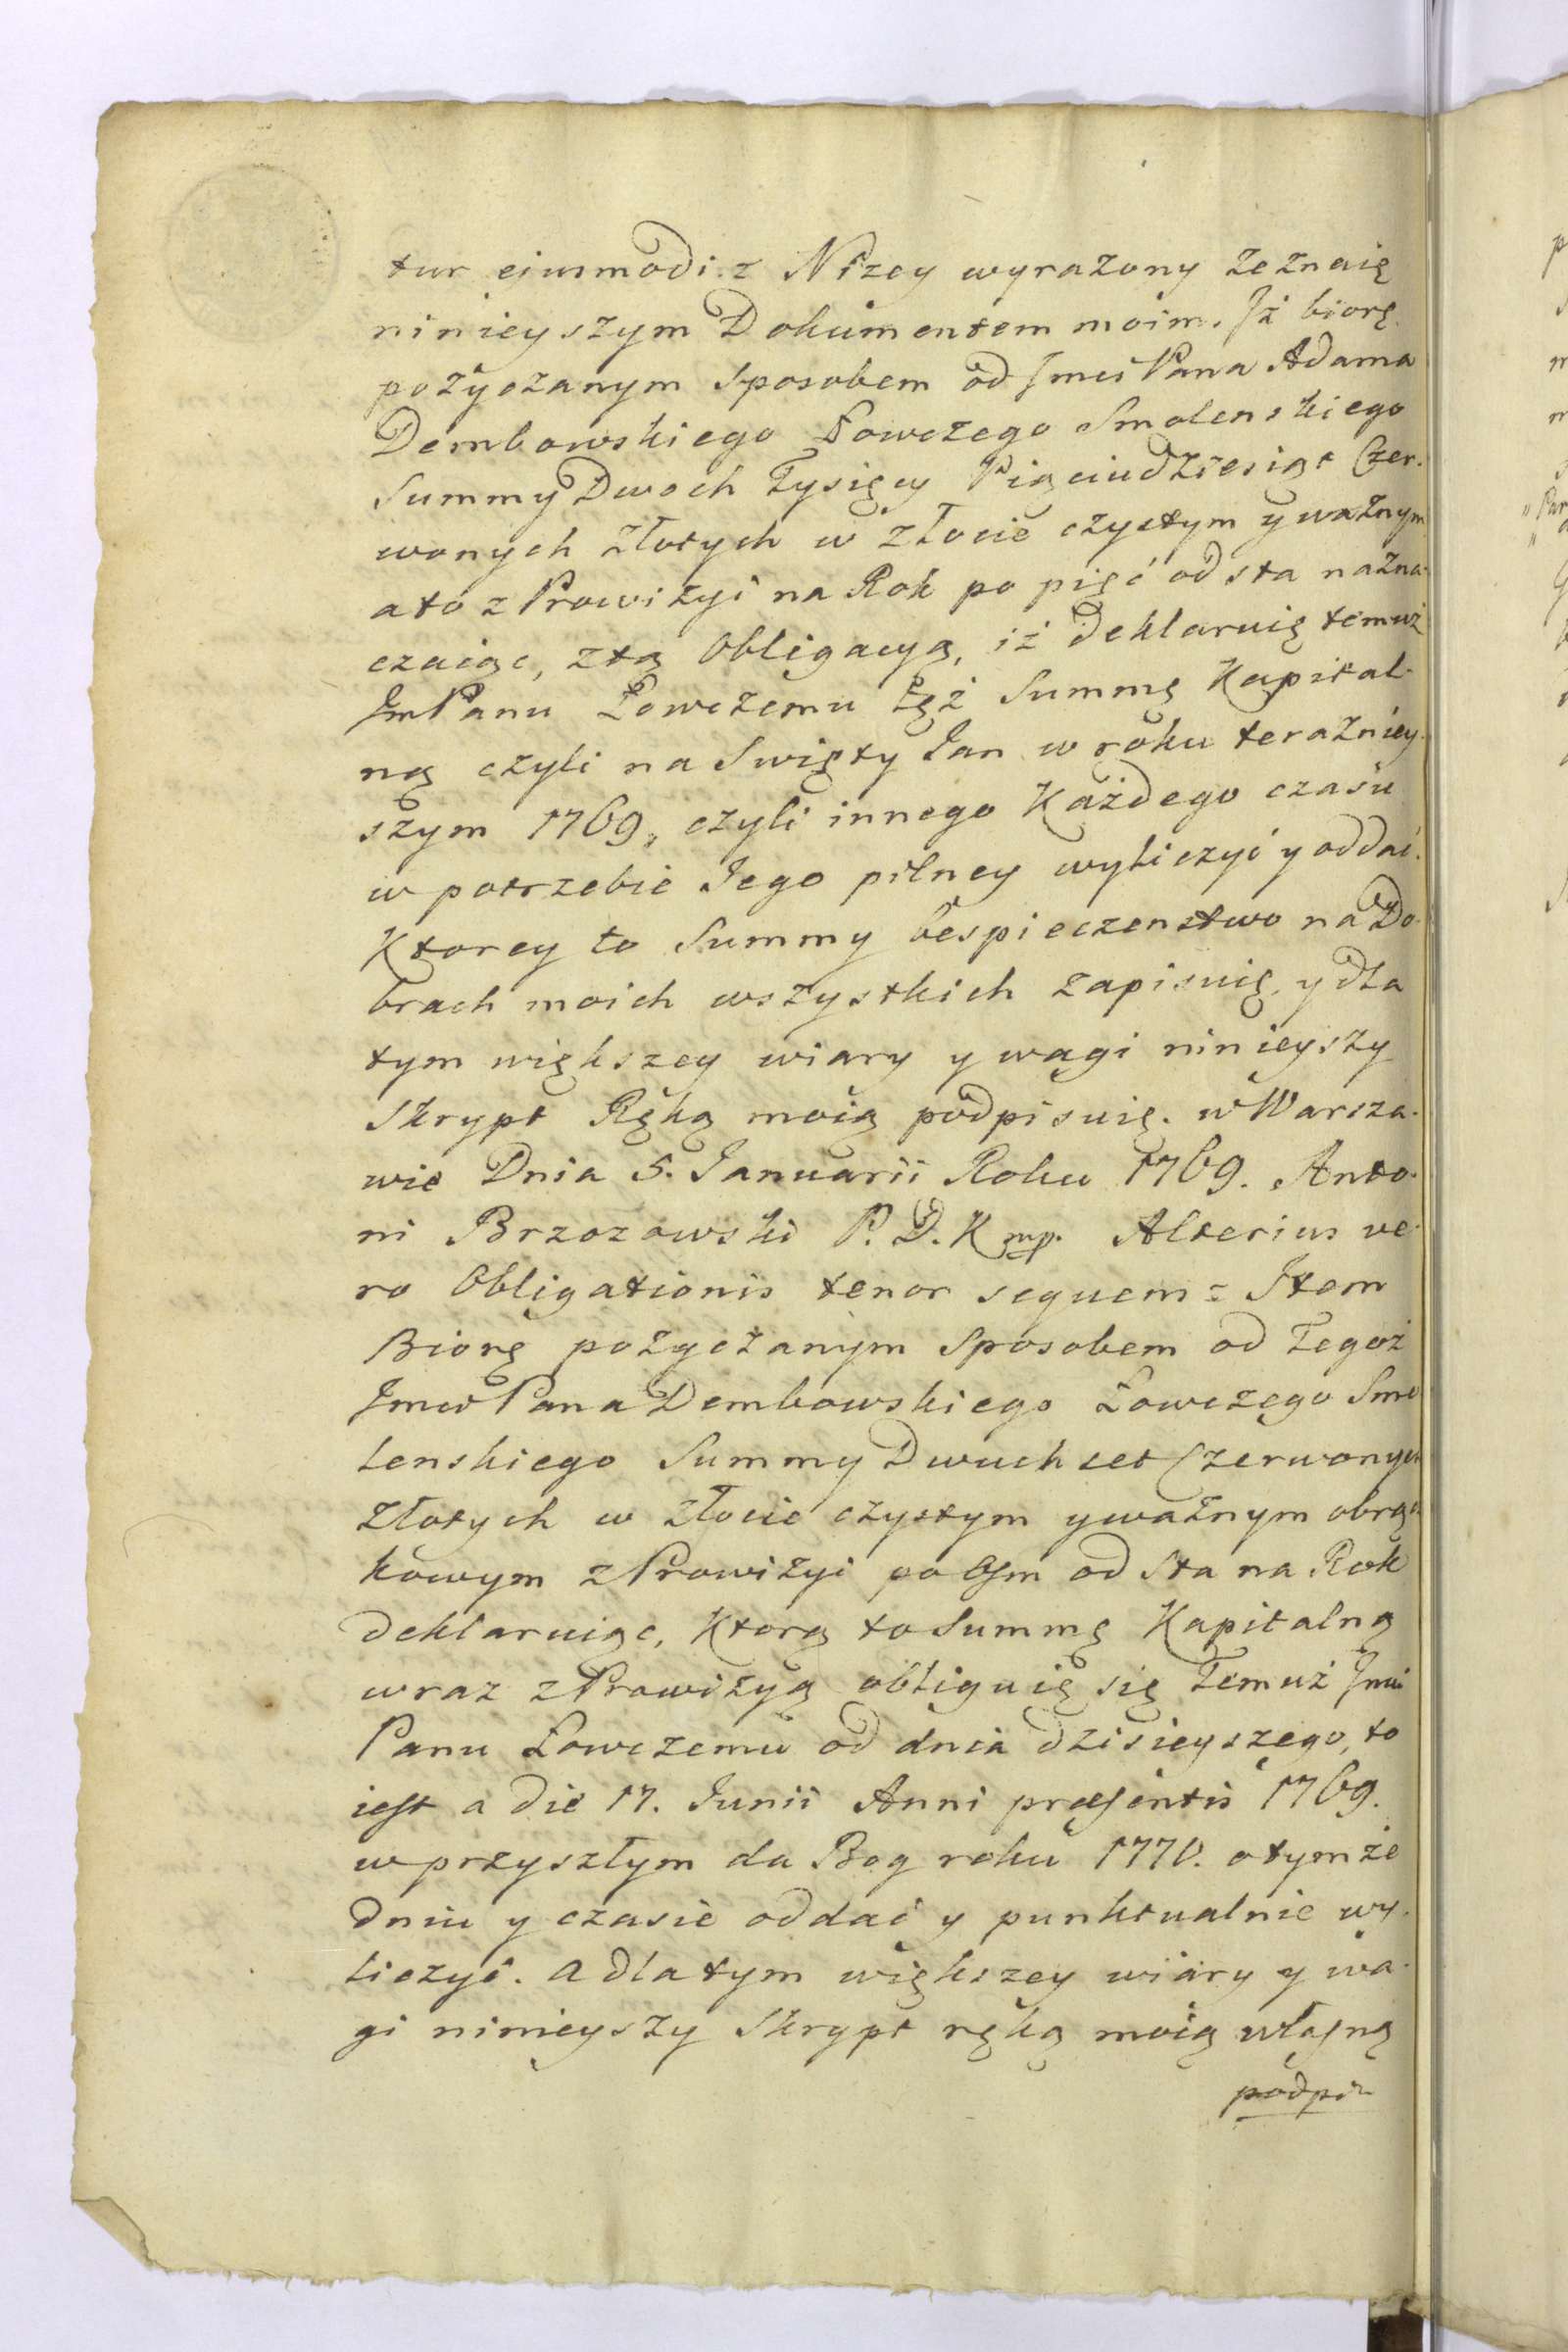 tur ejusmodi = Niżey wyrażony zeznaię
ninieyszym Dokumentem moim. Iż biorę
pożyczanym sposobem od Jmci Pana Adama
Dembowskiego Łowczego Smolenskiego
Summy Dwoch Tysięcy Pięciudziesiąt Czer-
wonych złotych w złocie czystym y ważnym
a to z Prowizyi na Rok po pięć od sta nazna-
czaiąc, z tą Obligacyą, iż deklaruię temuż
Jm Panu Łowczemu tęż Summę Kapital-
ną czyli na Swięty Jan w roku teraźniey-
szym 1769, czyli innego Każdego czasu
w potrzebie Jego pilney wyliczyć y oddać.
Ktorey to Summy bespieczenstwo na Do-
brach moich wszystkich zapisuię, y dla
tym większey wiary y wagi ninieyszy
Skrypt Ręką moią podpisuię. w Warsza-
wie Dnia 5. Januarii Roku 1769. Anto-
ni Brzozowski P. D. K mp. Alterius ve-
ro Obligationis tenor sequens = Item
Biorę pożyczanym Sposobem od Tegoż
Jmci Pana Dembowskiego Łowczego Smo
lenskiego Summy Dwuchset Czerwonych
Złotych w złocie czystym y ważnym obrącz-
kowym z Prowizyi po Osm od Sta na Rok
deklaruiąc, Ktorą to Summę Kapitalną
wraz z Prowizyą obliguię się Temuż Jmci
Panu Łowczemu od dnia dzisieyszego, to
iest a die 17. Junii Anni præsentis 1769.
w przyszłym da Bog roku 1770. o tymże
dniu y czasie oddać y punktualnie wy-
liczyć. A dla tym większey wiary y wa-
gi ninieyszy Skrypt ręką moią własną
podpi-